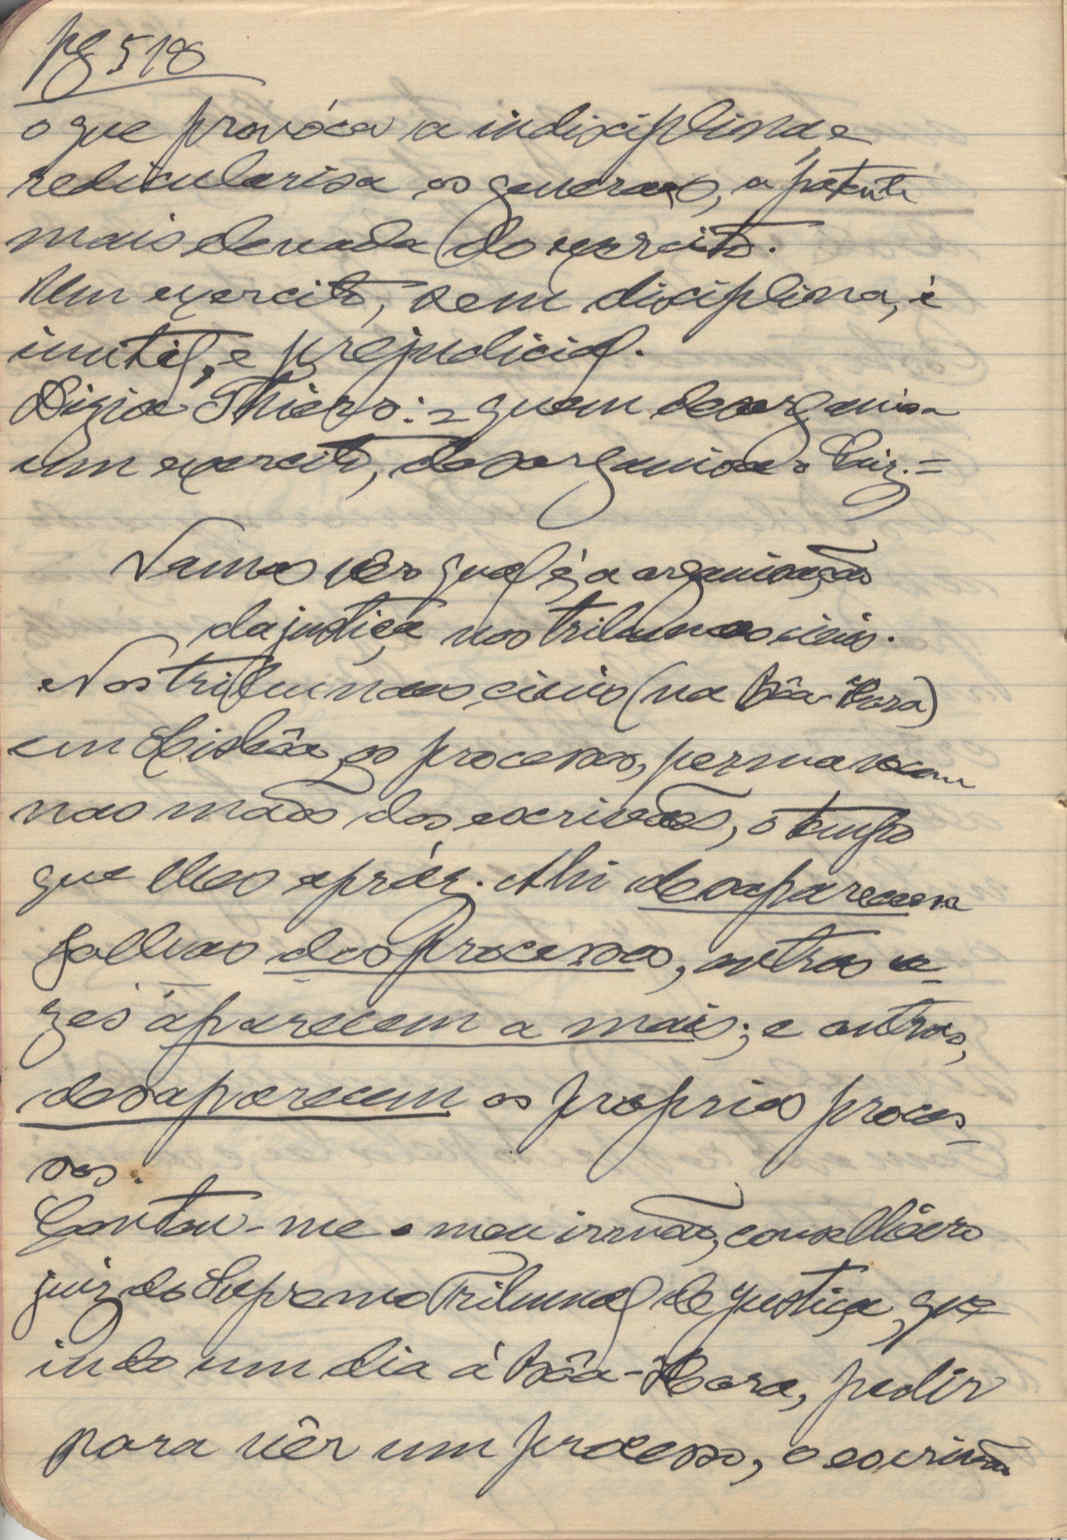 pg 518
o que provóca a indisciplina, e
redicularisa os generaes, a patente
mais elevada do exercito.
Um exercito, sem disciplina, é
inutil, e prejudicial.
Dizia Thiers: = quem desorganisa
um exercito, desorganisa o Paiz. =
Vamos vêr qual é, a organisação
da justiça nos tribunaes civis.
Nos tribunaes civis (na Bôa-Hora)
em Lisbôa os processos, permanecem
nas mãos dos escrivães, o tempo
que lhes apráz. Ahi desaparecem
folhas dos processos, outras ve-
zes aparecem a mais; e outras,
desaparecem os proprios proces-
sos.
Contou-me o meu irmão, conselheiro
juiz do Supremo Tribunal de Justiça, que
indo um dia á Bôa-Hora, pedir
para vêr um processo, o escrivão